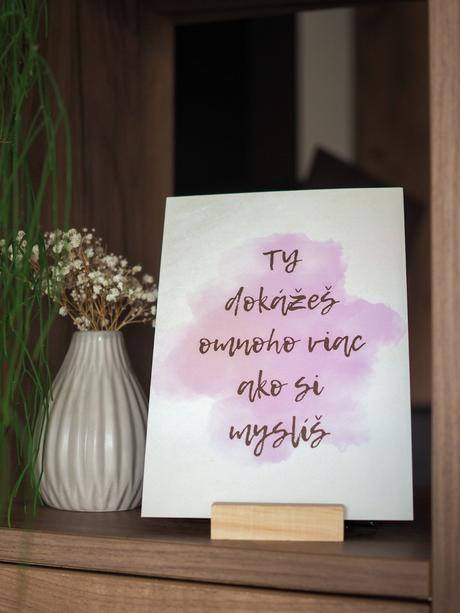 Ty
dokážeš
omnoho viac
ako si
myslíš